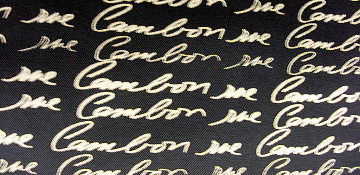 Cambon
rue Cambon rue Cambon
rue Cambon rue Cambon
rue Cambon rue Cambon
rue Cambon rue Cambon
rue Cambon rue Cambon
rue Cambon rue Cambon
rue Cambon rue Cambon